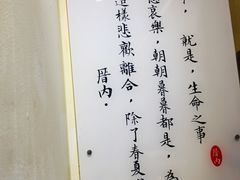 就是，生命之事
悲哀樂，朝朝暮暮都是，為
這樣悲歡離合，除了春夏
厝內．
厝內